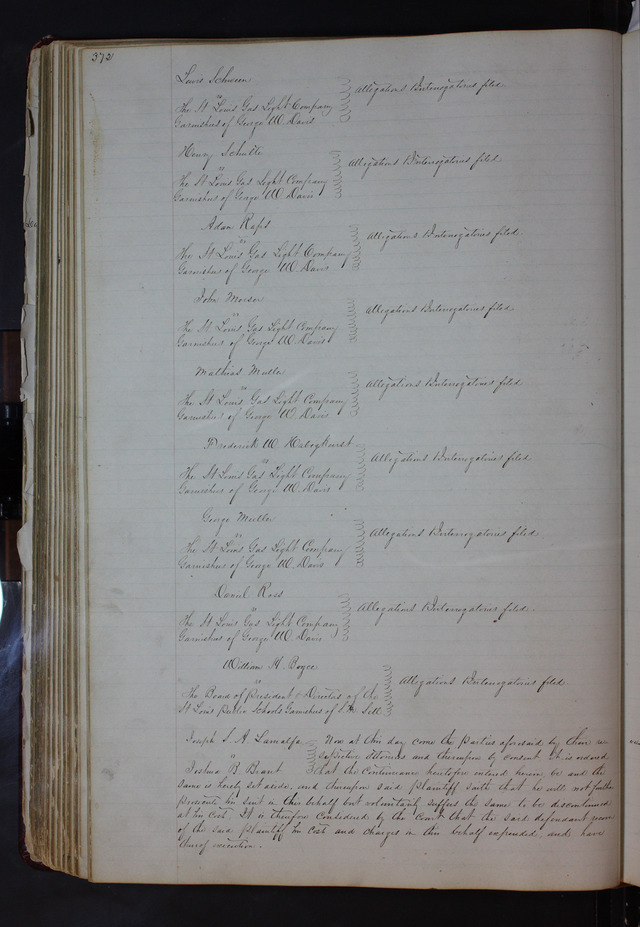 372
Louis Schween
vs
The St Louis Gas Light Company
Garnishees of George W. Davis
Allegations & Interrogatories filed.
Henry Schulte
vs
The St Louis Gas Light Company
Garnishees of George W. Davis
Allegations & Interrogatories filed.
Adam Raps
vs
The St Louis Gas Light Company
Garnishees of George W. Davis
Allegations & Interrogatories filed.
John
vs
The St Louis Gas Light Company
Garnishees of George W. Davis
Allegations & Interrogatories filed.
Mathias Muller
vs
The St Louis Gas Light Company
Garnishees of George W. Davis
Allegations & Interrogatories filed
Frederick W.
vs
The St Louis Gas Light Company
Garnishees of George W. Davis
Allegations & Interrogatories filed.
George Muller
vs
The St Louis Gas Light Company
Garnishees of George W. Davis
Allegations & Interrogatories filed.
Daniel Ross
vs
The St Louis Gas Light Company
Garnishees of George W. Davis
Allegations & Interrogatories filed.
William H. Boyce
vs
The Board of President & Directors of the
St Louis Public Schools Garnishees of Sell
Allegations & Interrogatories filed.
Joseph S. A. Lamalfa
vs
Joshua B. Brant
Now at this day come the parties aforesaid by their re-
spective attorneys and thereupon by consent it is ordered
that the continuance heretofore entered herein be and the
same is hereby set aside, and thereupon said plaintiff saith that he will not further
prosecute his suit in this behalf but voluntarily suffers the same to be discontinued
at his cost. It is therefore considered by the Court that the said defendant recover
of the said plaintiff his cost and charges in this behalf expended, and have
thereof execution.